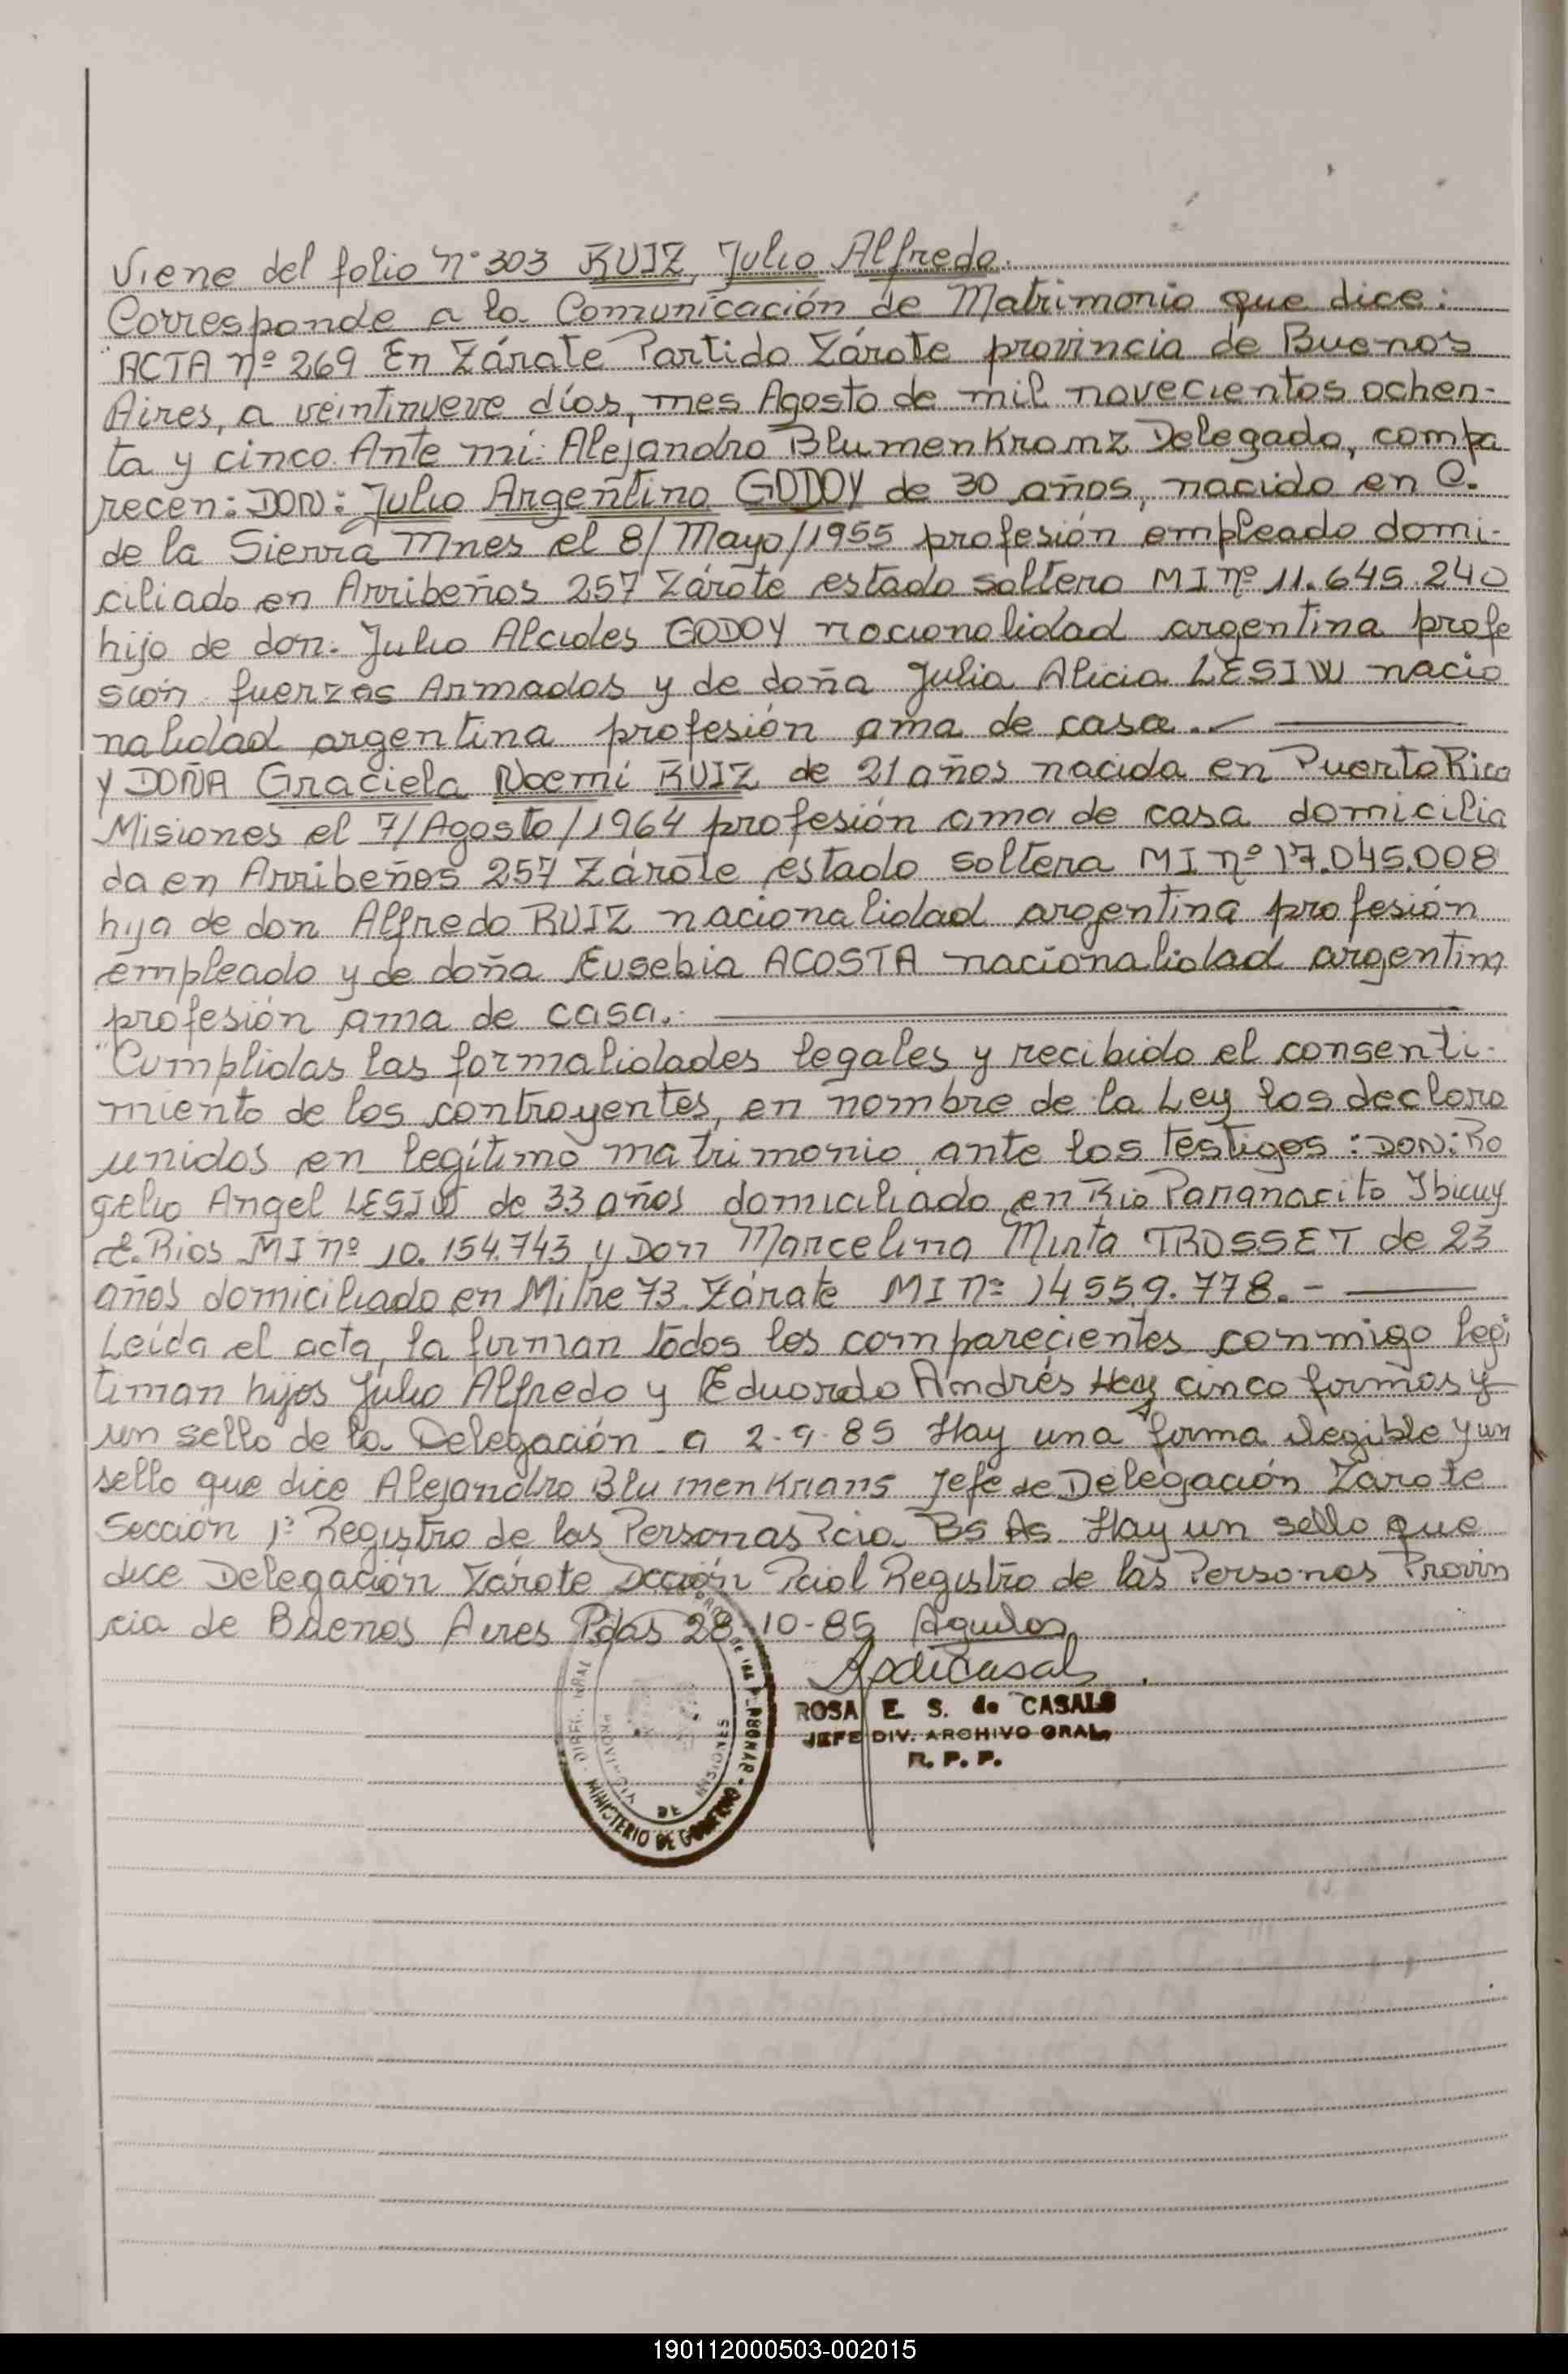 Viene del folio nº 303 RUIZ, Julio Alfredo.
Corresponde a la Comunicación de Matrimonio que dice:
"ACTA nº 269 En Zárate Partido Zárate provincia de Buenos
Aires, a veintinueve días, mes Agosto de mil novecientos ochen-
ta y cinco. Ante mí: Alejandro Blumenkranz Delegado, compa
recen: DON: Julio Argentino GODOY de 30 años, nacido en C.
de la Sierra Mnes el 8/Mayo/1955 profesión empleado domi-
ciliado en Arribeños 257 Zárate estado soltero MI nº 11.645.240
hijo de don: Julio Alcides GODOY nacionalidad argentina profe
sión fuerzas Armadas y de doña Julia Alicia LESIW nacio
nalidad argentina profesión ama de casa.
Y DOÑA Graciela Noemí RUIZ de 21 años nacida en Puerto Rico
Misiones el 7/Agosto/1964 profesión ama de casa domicilia
da en Arribeños 257 Zárate estado soltera MI nº 17.045.008
hija de don Alfredo RUIZ nacionalidad argentina profesión
empleado y de doña Eusebia ACOSTA nacionalidad argentina
profesión ama de casa.
"Cumplidas las formalidades legales y recibido el consenti-
miento de los contrayentes, en nombre de la Ley los declaro
unidos en legítimo matrimonio ante los testigos: DON: Ro
gelio Angel LESIW de 33 años domiciliado en Rio Paranacito Ibicuy
E. Rios MI nº 10.154.743 y Don Marcelina Mirta TROSSET de 23
años domiciliado en Mitre 73 Zárate MI nº 14.559.778.-
Leída el acta, la firman todos los comparecientes conmigo legi
timan hijos Julio Alfredo y Eduardo Andrés Hay cinco firmas y
un sello de la Delegación a 2-9-85 Hay una firma ilegible y un
sello que dice Alejandro Blumenkrans Jefe de Delegación Zarate
Sección 1º Registro de las Personas Pcia Bs As. Hay un sello que
dice Delegación Zárate Dcción Pcial Registro de las Personas Provin
cia de Buenos Aires Pdas 28-10-85
ROSA E. S. de CASALS
JEFE DIV. ARCHIVO GRAL.
R. P. P.
PROVINCIA DE MISIONES
MINISTERIO DE GOBIERNO
190112000503-002015